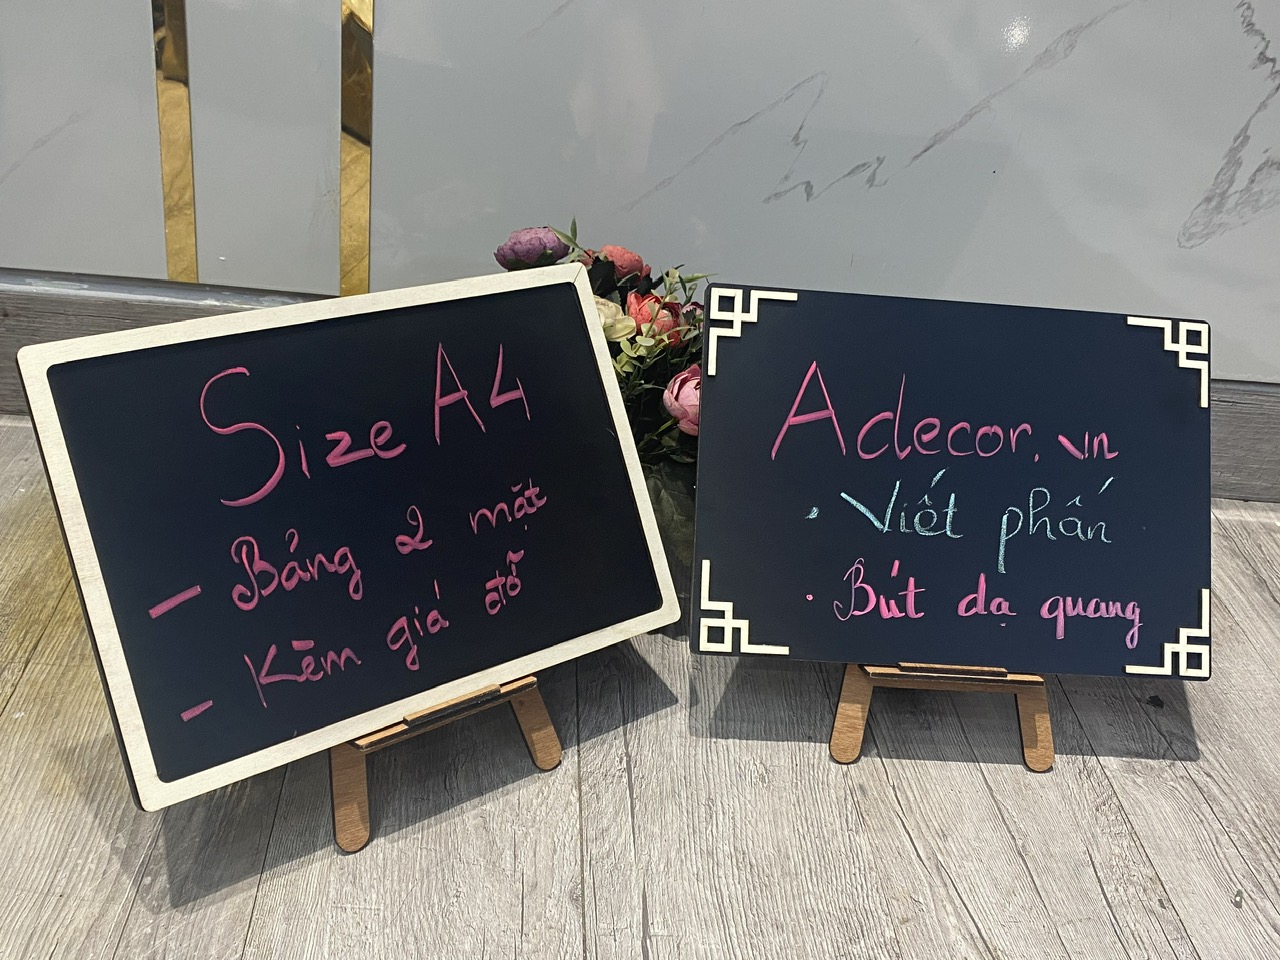 Size A4
- Bảng 2 mặt
- Kèm giá đỡ
Adecor.vn
. Viết phấn
. Bút dạ quang